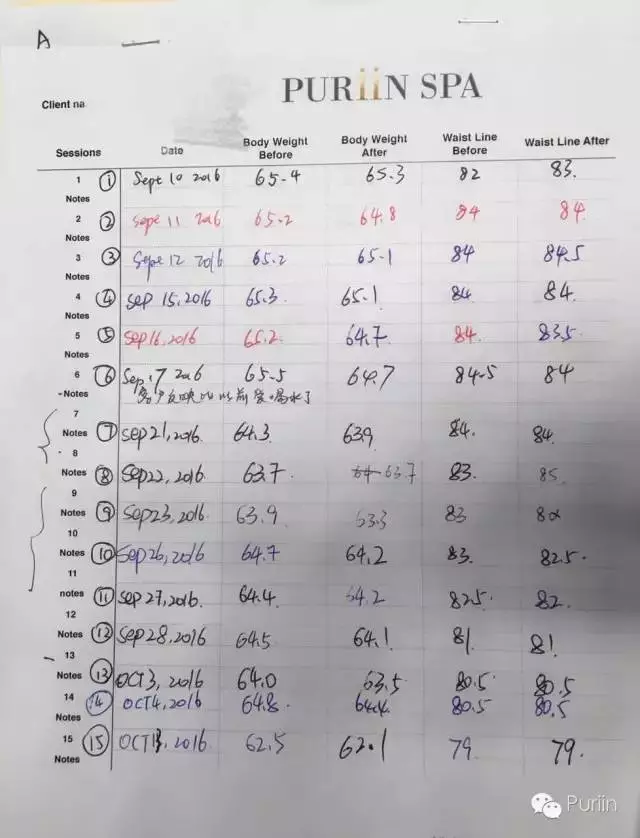 A
PURiiN SPA
Client na
Sessions Date Body Weight Before Body Weight After Waist Line Before Waist Line After
1 ① Sept 10 2016 65.4 65.3 82 83.
Notes
2 ② Sept 11 2016 65.2 64.8 84 84.
Notes
3 ③ Sept 12 2016 65.2 65.1 84 84.5
Notes
4 ④ Sep 15,2016 65.3. 65.1 84 84.
Notes
5 ⑤ Sep16,2016 65.2 64.7 84. 83.5
Notes
6 ⑥ Sep.17 2016 65.5 64.7 84.5 84
-Notes 客户反映比以前爱喝水了
7
Notes ⑦ Sep21,2016. 64.3 63.9 84. 84.
8
Notes ⑧ Sep22,2016. 63.7 63.7 83. 85
9
Notes ⑨ Sep23,2016 63.9 63.3 83
10
Notes ⑩ Sep26,2016 64.7 64.2 83. 82.5.
11
notes ⑪ Sep 27,2016. 64.4 64.2 82.5. 82.
12
Notes ⑫ Sep 28,2016 64.5 64.1 81 81.
13
Notes ⑬ OCT3, 2016 64.0 63.5 80.5 80.5
14 ⑭ OCT4,2016 64.8 64.4 80.5 80.5
Notes
15 ⑮ 2016 62.5 62.1 79 79.
Notes
Puriin